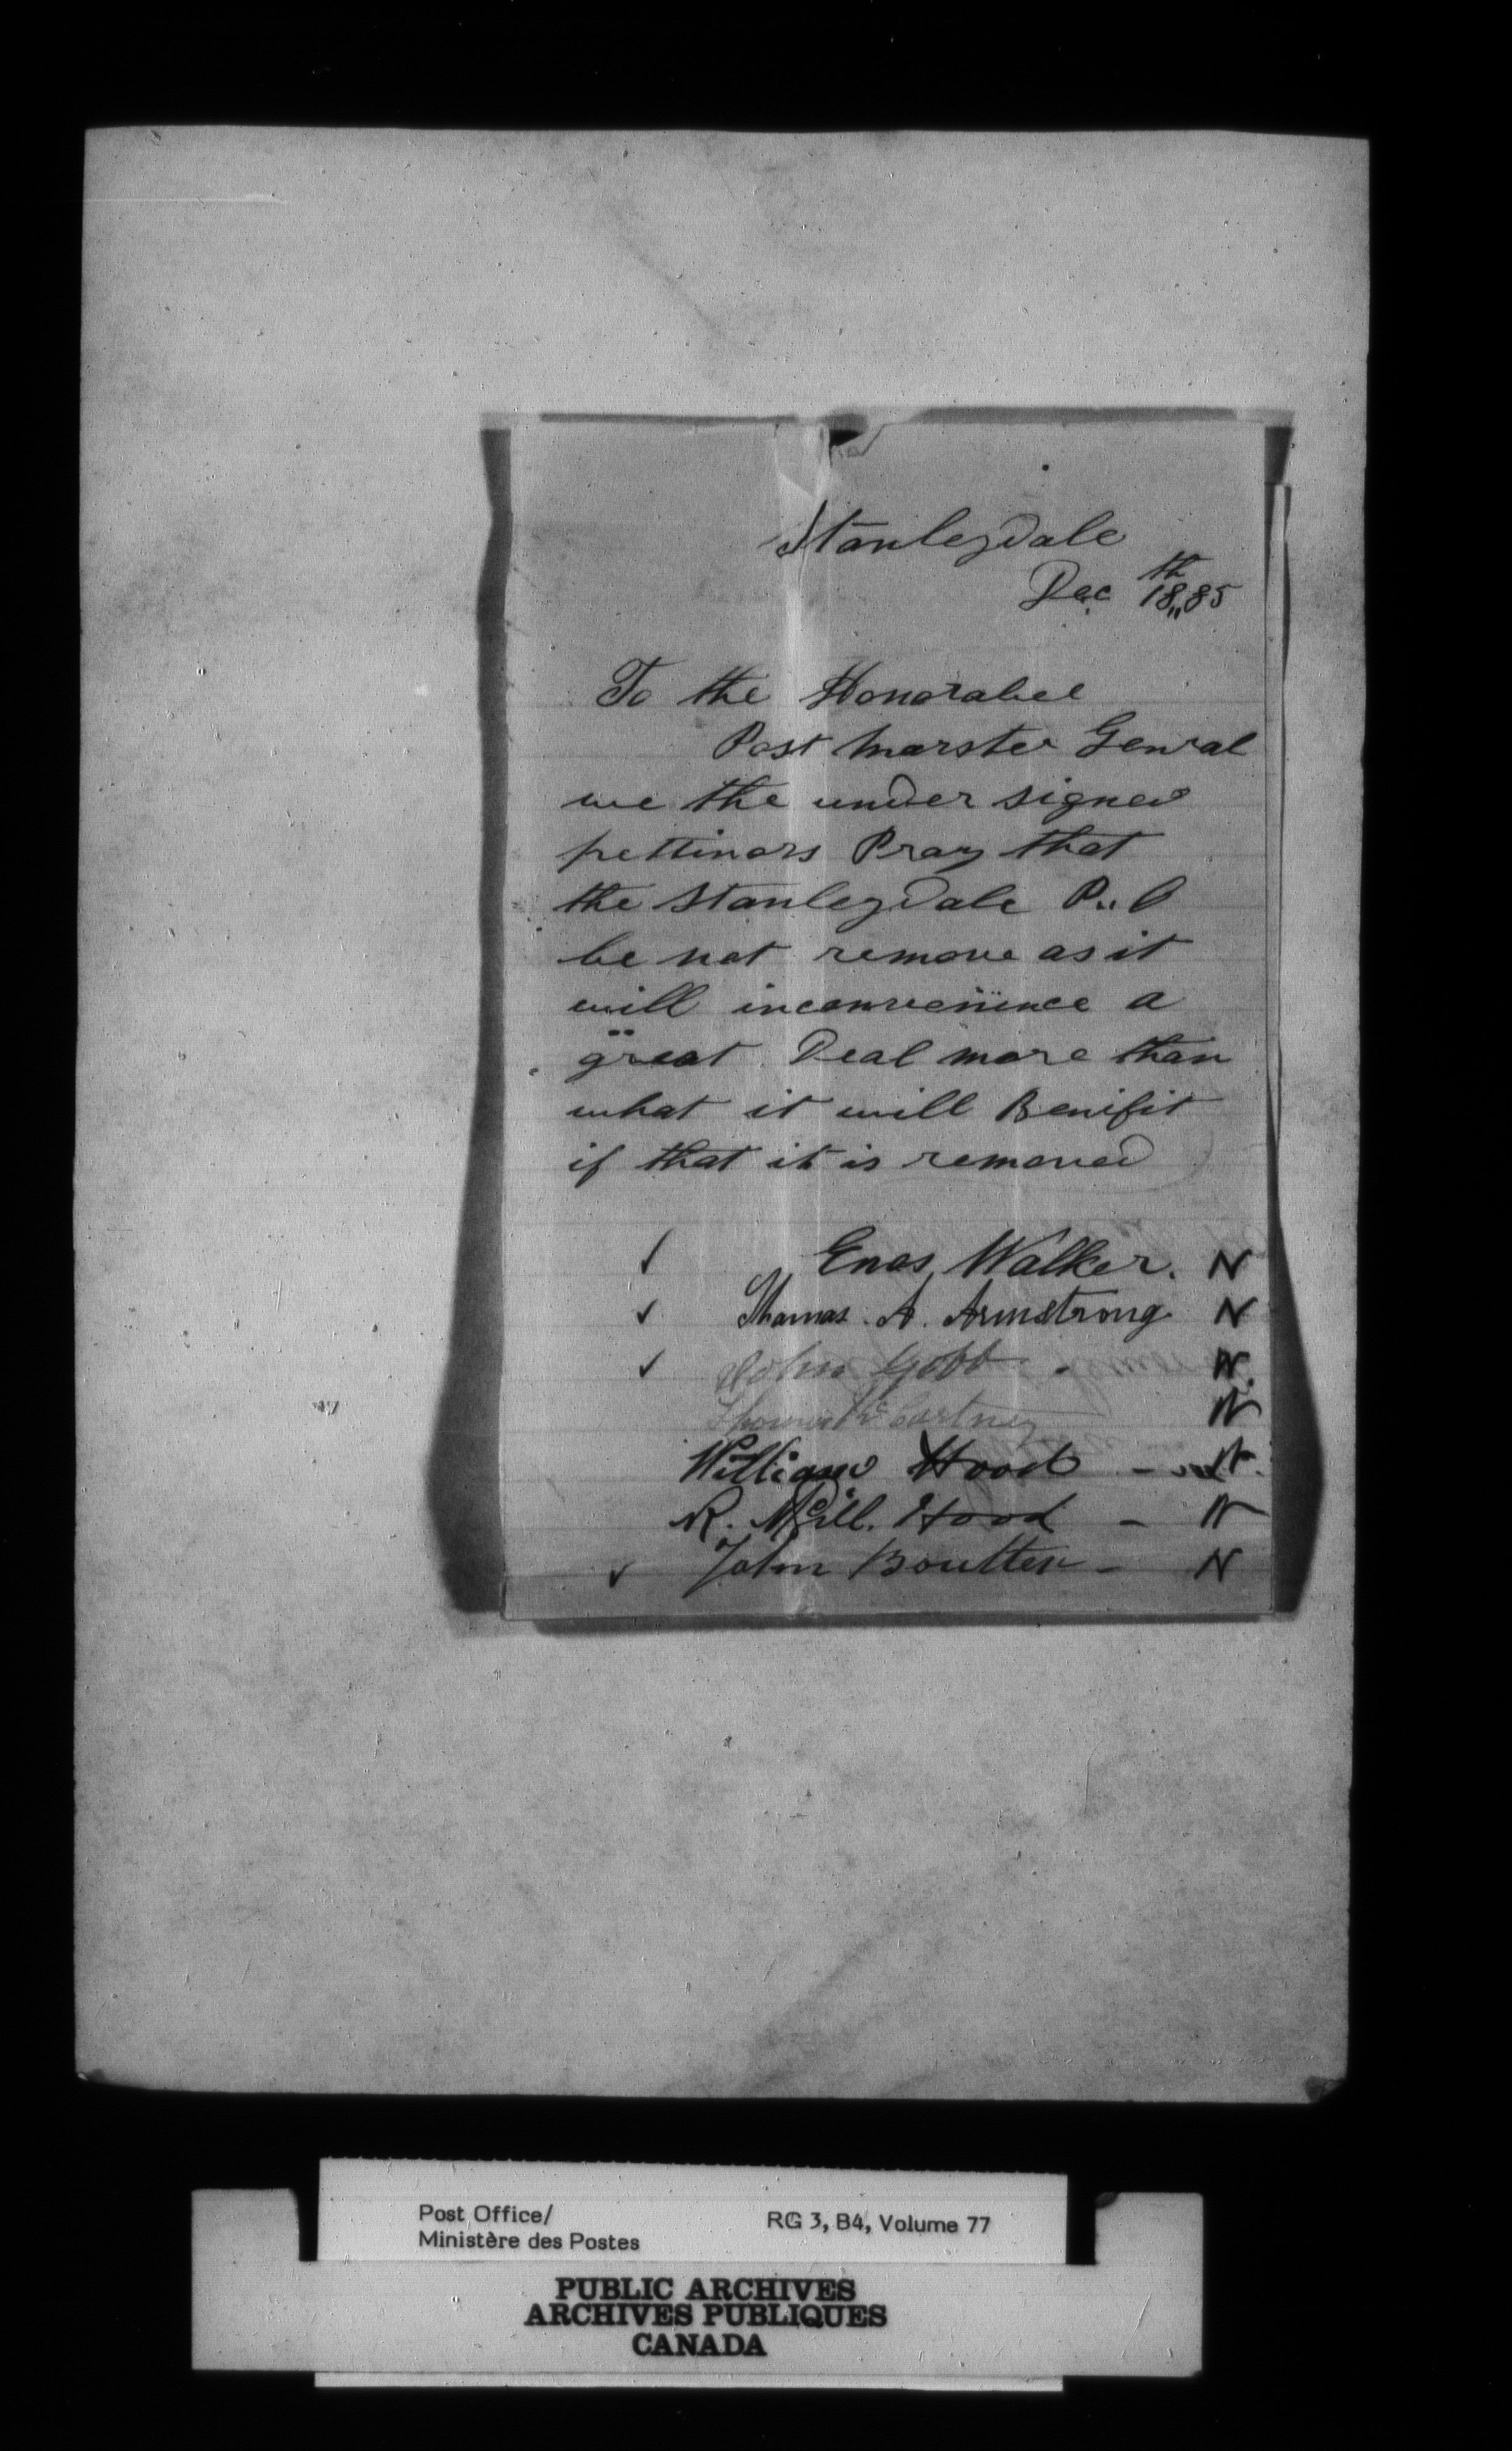 Stanleydale
Dec 18th,,85
To the Honorabel
Post Marster Genral
we the under signed
pettinors Pray that
the Stanleydale P,,O
be not remove as it
will inconvenience a
great Deal more than
what it will Benifit
if that it is removed
✓ Enos Walker. N
✓ Thomas. A. Armstrong N
✓ John Gott - N.
Thomas McCartney N
William Hood - N.
R. McGill. Hood - N
✓ John Boulter - N
Post Office/ RG 3, B4, Volume 77
Ministère des Postes
PUBLIC ARCHIVES
ARCHIVES PUBLIQUES
CANADA